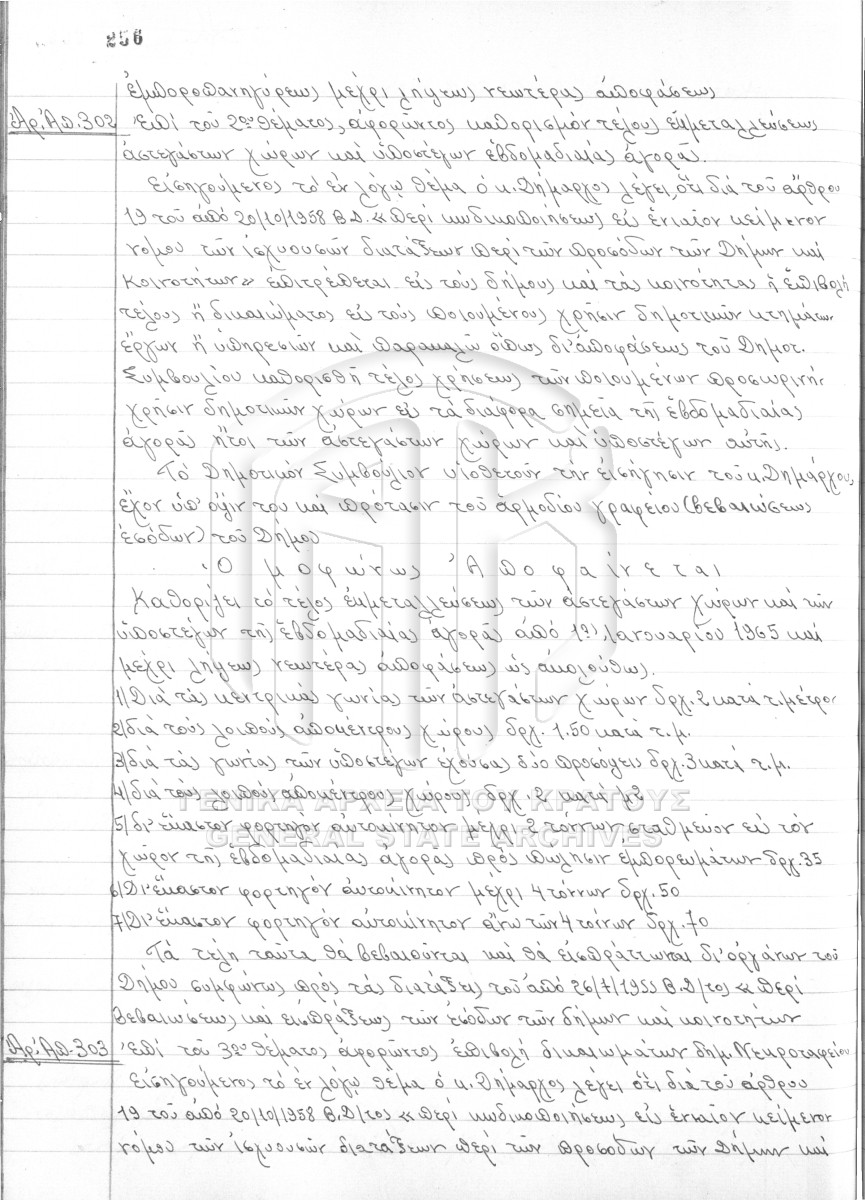 256
ἐμποροπανηγύρεως μέχρι λήψεως νεωτέρας ἀποφάσεως
Ἀρ. Ἀπ. 302 Ἐπί τοῦ 2ου θέματος, ἀφορῶντος καθορισμόν τέλους ἐκμεταλλεύσεως
ἀστεγάστων χώρων καί ὑποστέγων ἑβδομαδιαίας ἀγορᾶς.
Εἰσηγούμενος τό ἐν λόγῳ θέμα ὁ κ. Δήμαρχος λέγει, ὅτι διά τοῦ ἄρθρου
19 τοῦ ἀπό 20/10/1958 Β.Δ. «περί κωδικοποιήσεως εἰς ἑνιαῖον κείμενον
νόμου τῶν ἰσχυουσῶν διατάξεων περί τῶν προσόδων τῶν Δήμων καί
Κοινοτήτων» ἐπιτρέπεται εἰς τούς δήμους καί τάς κοινότητας ἡ ἐπιβολή
τέλους ἤ δικαιώματος εἰς τούς ποιουμένους χρῆσιν δημοτικῶν κτημάτων
ἔργων ἤ ὑπηρεσιῶν καί παρακαλῶ ὅπως δι' ἀποφάσεως τοῦ Δημοτ.
Συμβουλίου καθορισθῇ τέλος χρήσεως τῶν ποιουμένων προσωρινήν
χρῆσιν δημοτικῶν χώρων εἰς τά διάφορα σημεῖα τῆς ἑβδομαδιαίας
ἀγορᾶς ἤτοι τῶν ἀστεγάστων χώρων καί ὑποστέγων αὐτῆς.
Τό Δημοτικόν Συμβούλιον υἱοθετοῦν τήν εἰσήγησιν τοῦ κ. Δημάρχου,
ἔχον ὑπ' ὄψιν του καί πρότασιν τοῦ ἁρμοδίου γραφείου (βεβαιώσεως
ἐσόδων) τοῦ Δήμου
Ὁ μ ο φ ώ ν ω ς Ἀ π ο φ α ί ν ε τ α ι
Καθορίζει τό τέλος ἐκμεταλλεύσεως τῶν ἀστεγάστων χώρων καί τῶν
ὑποστέγων τῆς ἑβδομαδιαίας ἀγορᾶς ἀπό 1ης Ἰανουαρίου 1965 καί
μέχρι λήψεως νεωτέρας ἀποφάσεως ὡς ἀκολούθως.
1) Διά τάς κεντρικάς γωνίας τῶν ἀστεγάστων χώρων δρχ. 2 κατά τ. μέτρον
2) διά τούς λοιπούς ἀποκέντρους χώρους δρχ. 1.50 κατά τ.μ.
3) διά τάς γωνίας τῶν ὑποστέγων ἐχούσας δύο προσόψεις δρχ. 3 κατά τ.μ.
4) διά τούς λοιπούς ἀποκέντρους χώρους δρχ. 2 κατά μ2
ΓΕΝΙΚΑ ΑΡΧΕΙΑ ΤΟΥ ΚΡΑΤΟΥΣ
5) δι' ἕκαστον φορτηγόν αὐτοκίνητον μέχρι 2 τόννων σταθμεῦον εἰς τόν
GENERAL STATE ARCHIVES
χῶρον τῆς ἑβδομαδιαίας ἀγορᾶς πρός πώλησιν ἐμπορευμάτων δρχ. 35
6) Δι' ἕκαστον φορτηγόν αὐτοκίνητον μέχρι 4 τόννων δρχ. 50
7) Δι' ἕκαστον φορτηγόν αὐτοκίνητον ἄνω τῶν 4 τόννων δρχ. 70
Τά τέλη ταῦτα θά βεβαιοῦνται καί θά εἰσπράττωνται δι' ὀργάνων τοῦ
Δήμου συμφώνως πρός τάς διατάξεις τοῦ ἀπό 26/7/1955 Β.Δ/τος «περί
βεβαιώσεως καί εἰσπράξεως τῶν ἐσόδων τῶν δήμων καί κοινοτήτων
Ἀρ. Ἀπ. 303 Ἐπί τοῦ 3ου θέματος ἀφορῶντος ἐπιβολή δικαιωμάτων δημ. Νεκροταφείου
Εἰσηγούμενος τό ἐν λόγῳ θέμα ὁ κ. Δήμαρχος λέγει ὅτι διά τοῦ ἄρθρου
19 τοῦ ἀπό 20/10/1958 Β.Δ/τος «περί κωδικοποιήσεως εἰς ἑνιαῖον κείμενον
νόμου τῶν ἰσχυουσῶν διατάξεων περί τῶν προσόδων τῶν Δήμων καί